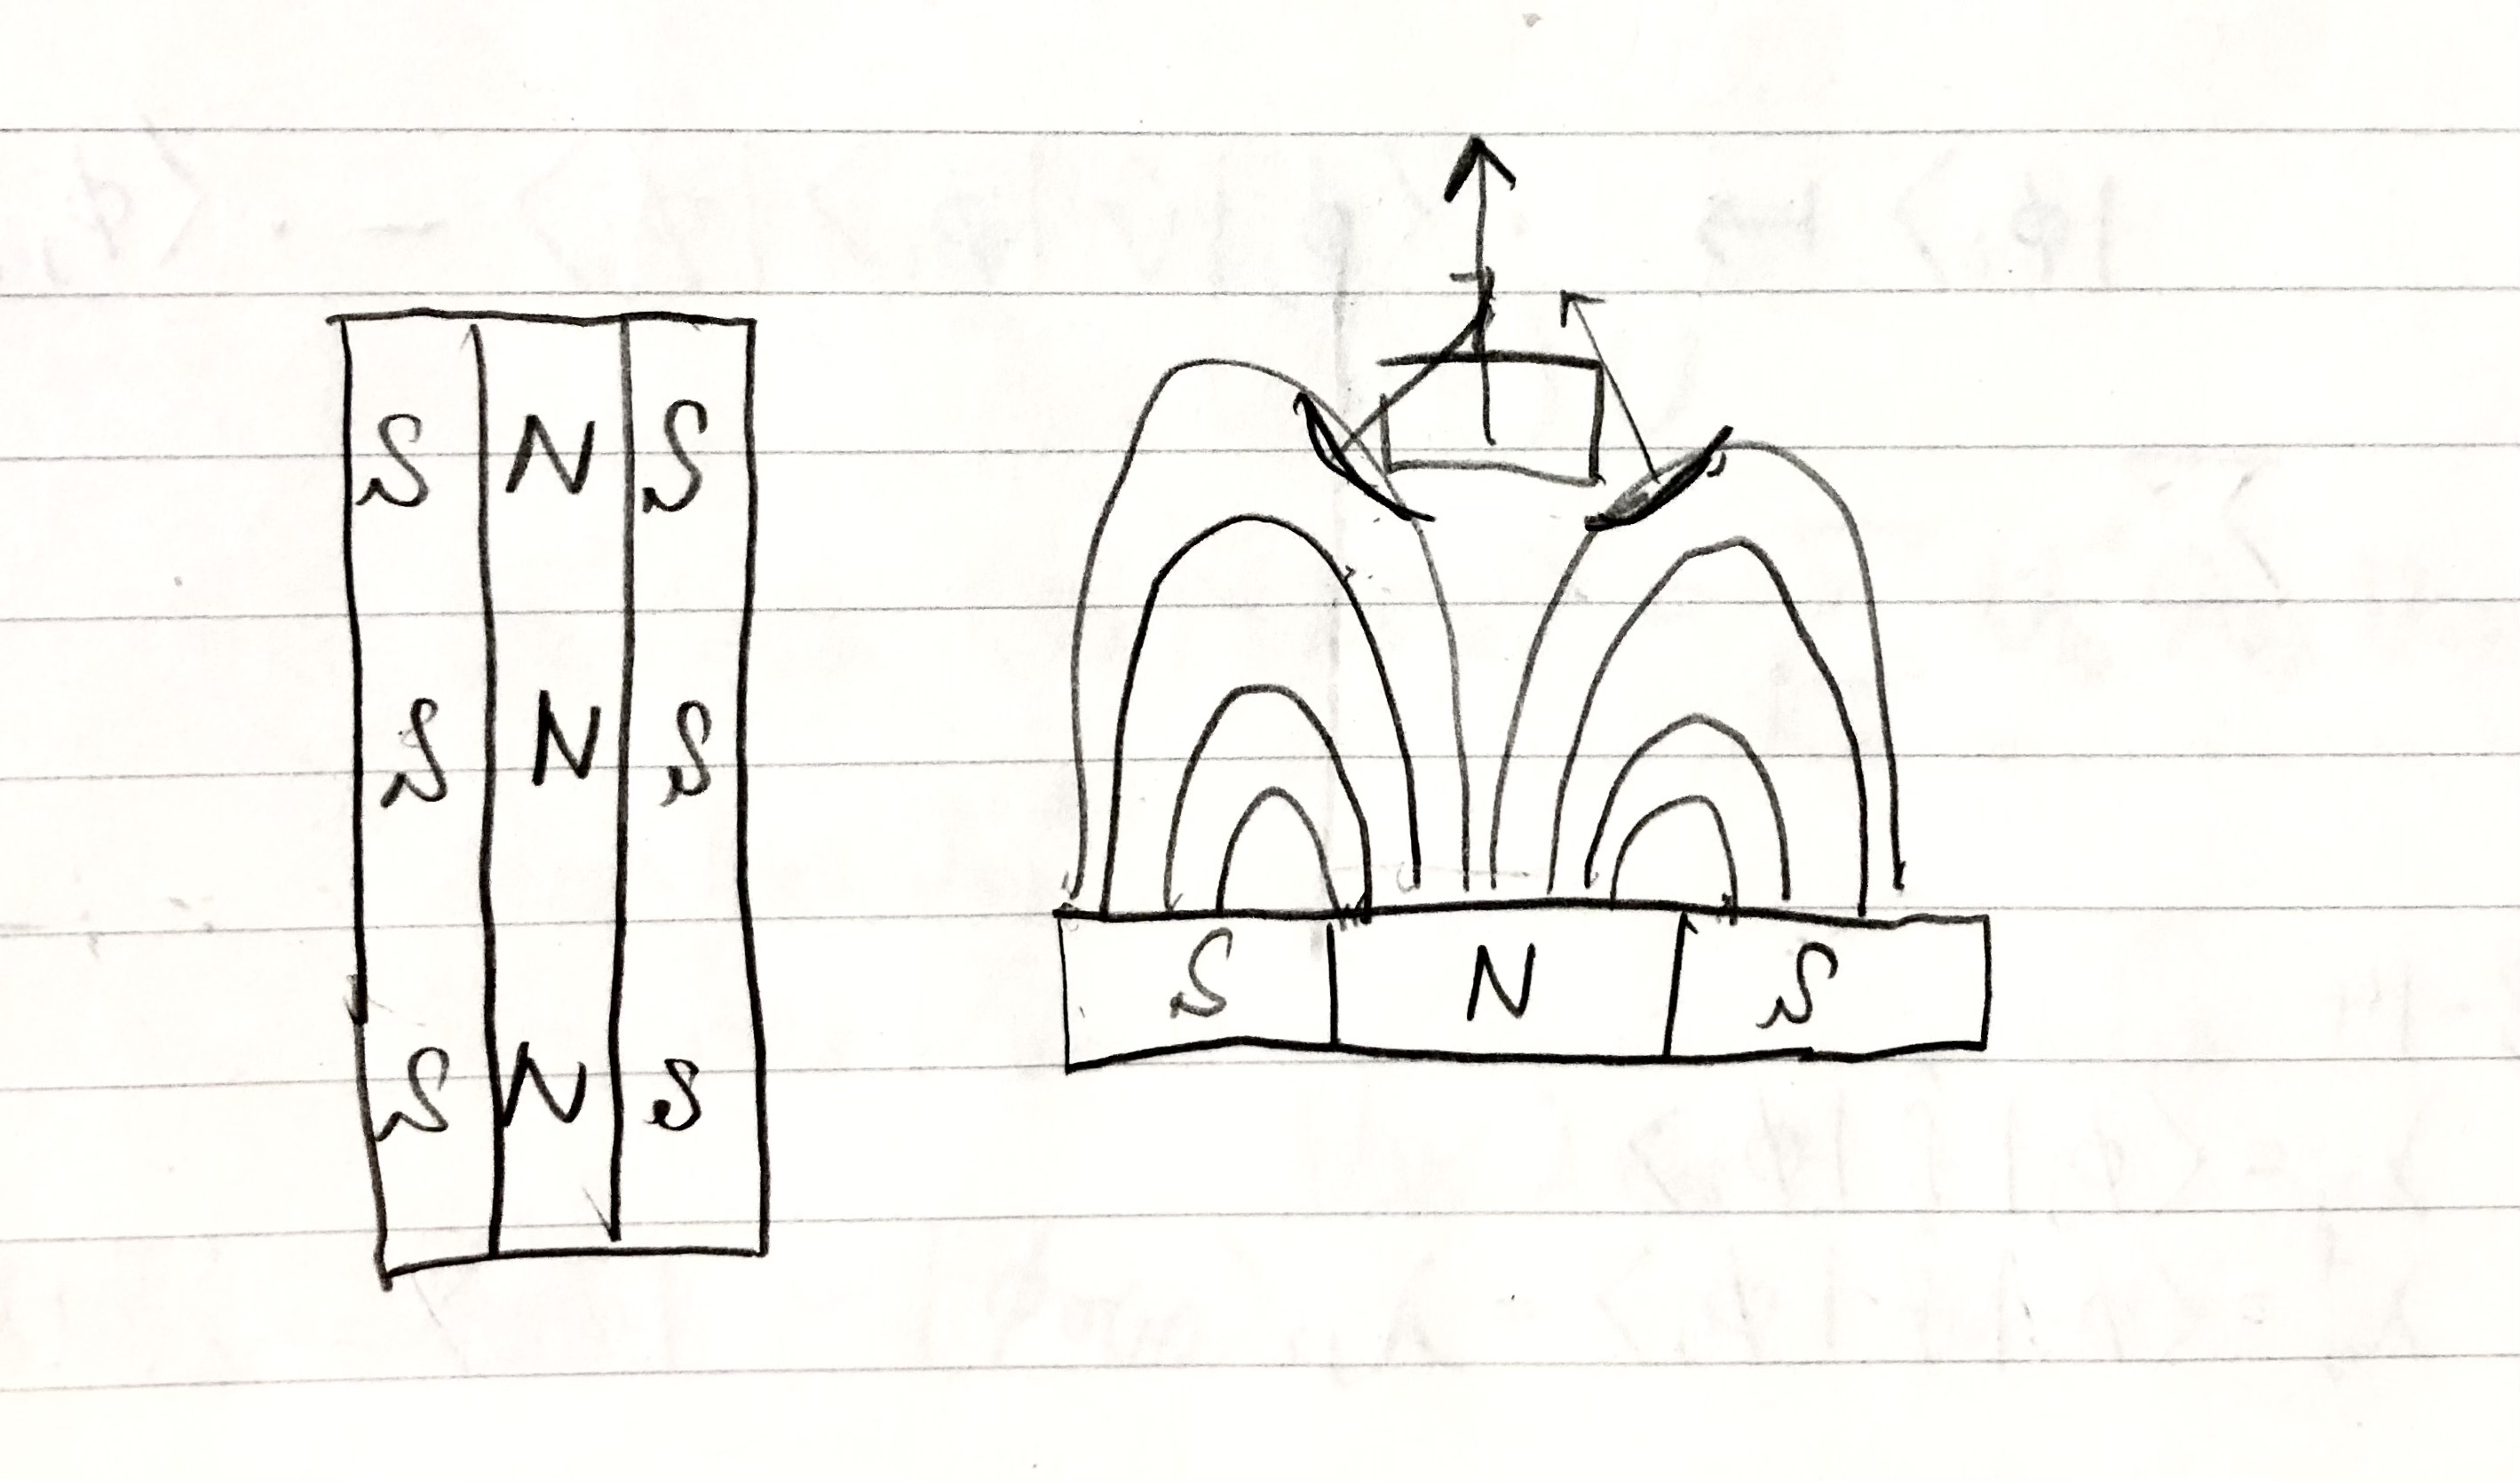 S N S
S N S
S N S
S N S